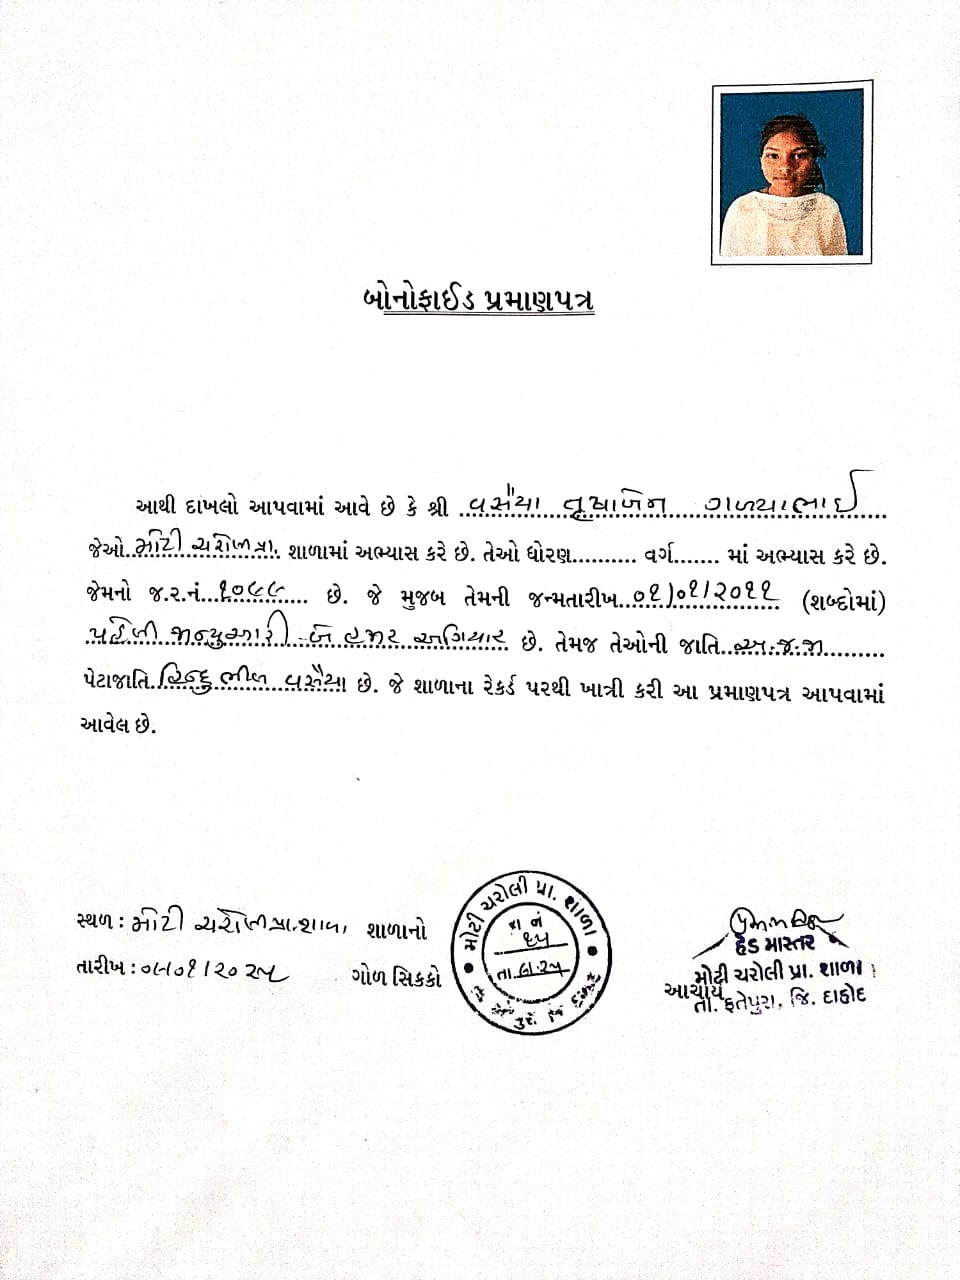 બોનોફાઈડ પ્રમાણપત્ર
આથી દાખલો આપવામાં આવે છે કે શ્રી વસૈયા તૃષાબેન ગળયાભાઈ
જેઓ મોટી ચરોલી પ્રા. શાળામાં અભ્યાસ કરે છે. તેઓ ધોરણ.......... વર્ગ....... માં અભ્યાસ કરે છે.
જેમનો જ.ર.નં. ૧૦૯૯ છે. જે મુજબ તેમની જન્મતારીખ ૦૧/૦૧/૨૦૧૧ (શબ્દોમાં)
પહેલી જાન્યુઆરી બે હજાર અગિયાર છે. તેમજ તેઓની જાતિ અ.જ.જા
પેટાજાતિ હિન્દુ ભીલ વસૈયા છે. જે શાળાના રેકર્ડ પરથી ખાત્રી કરી આ પ્રમાણપત્ર આપવામાં
આવેલ છે.
સ્થળ : મોટી ચરોલી પ્રા.શાળા શાળાનો
તારીખ : ગોળ સિક્કો
મોટી ચરોલી પ્રા. શાળા
હેડ માસ્તર
મોટી ચરોલી પ્રા. શાળા
આચાર્ય
તા. ફતેપુરા, જિ. દાહોદ